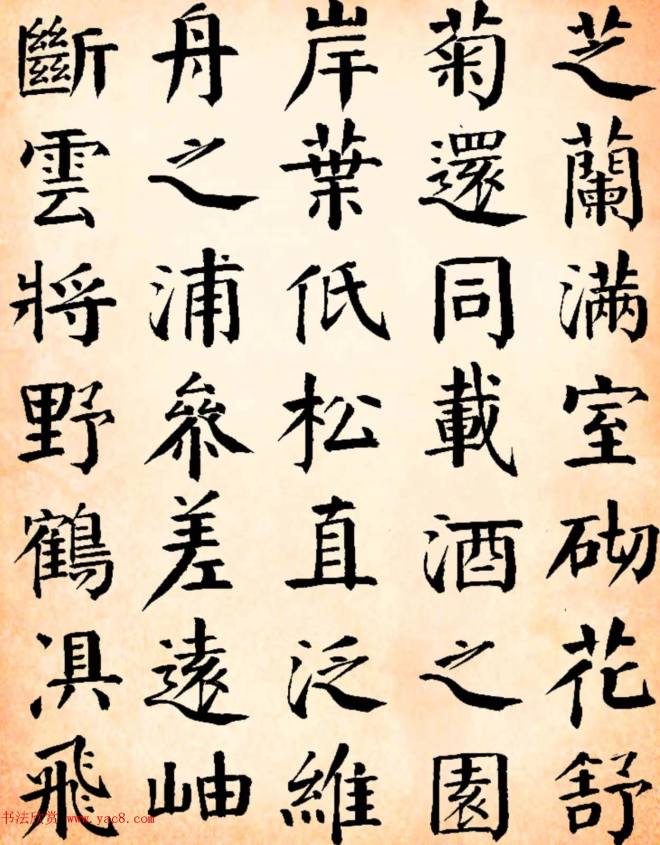 芝蘭满室砌花舒
菊還同載酒之園
岸葉低松直泛維
舟之浦參差遠岫
斷雲將野鶴俱飛
书法欣赏 www.yac8.com